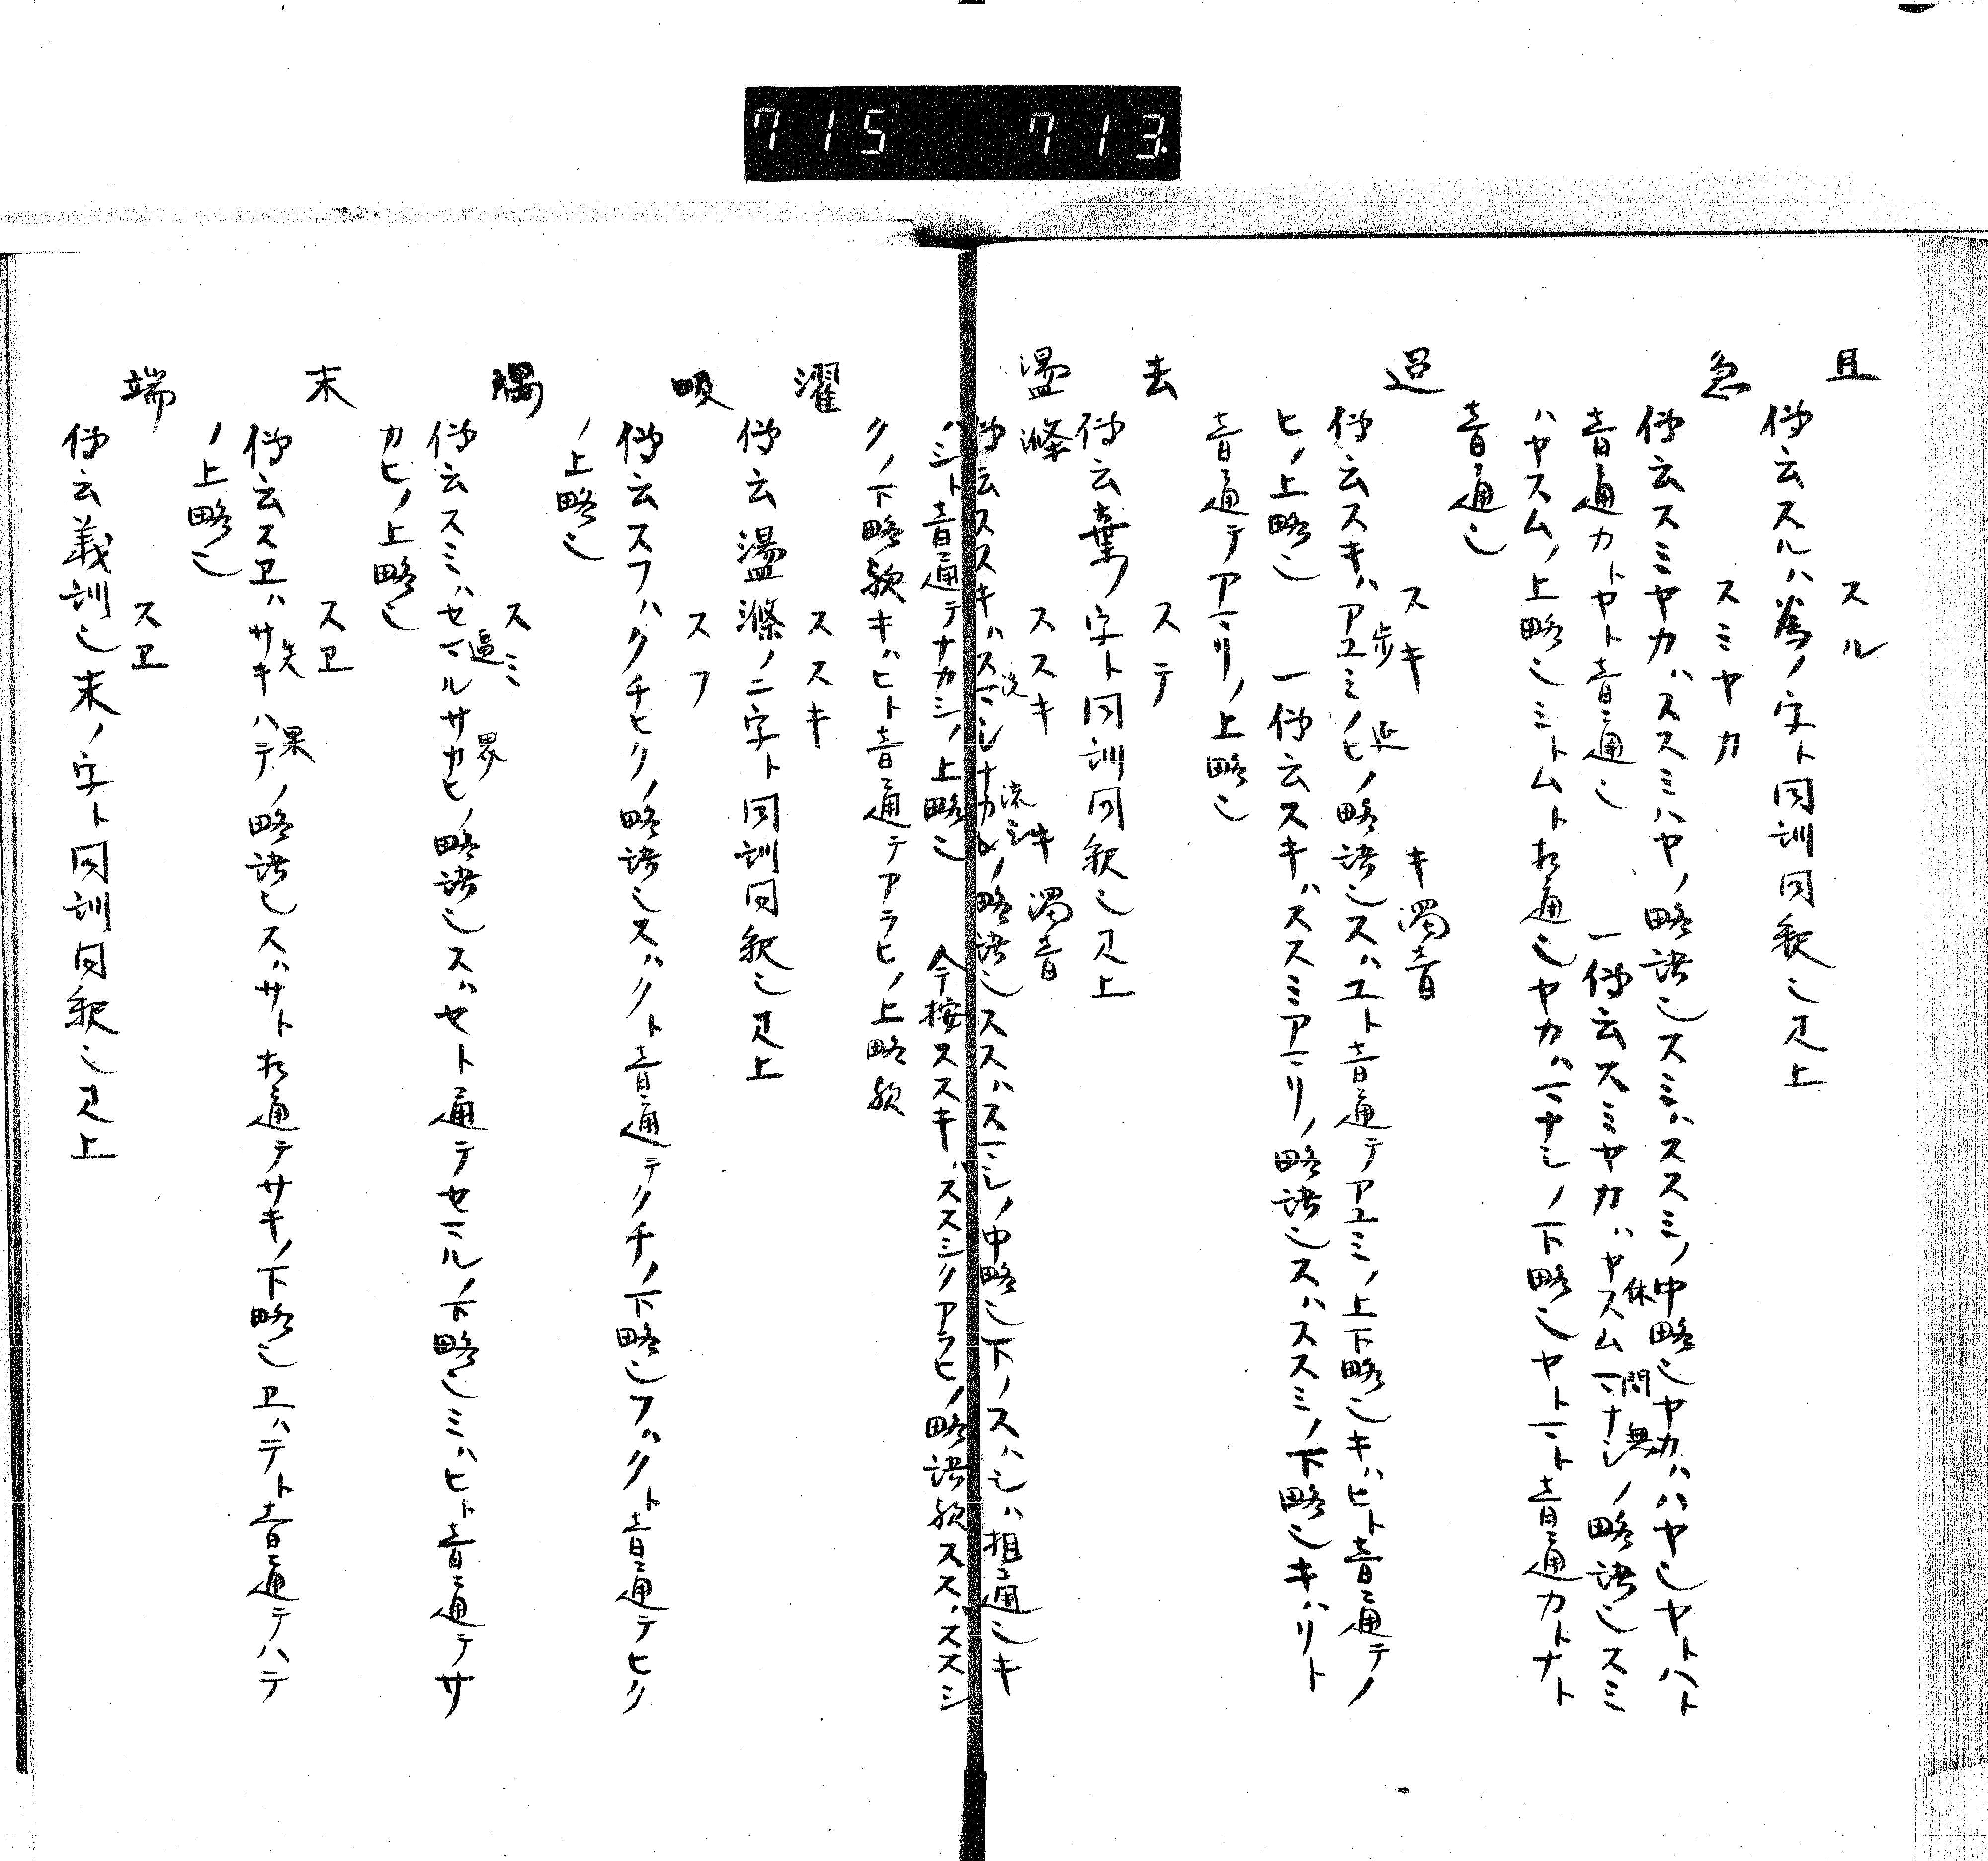 715 713.
且 スル
伊云スルハ為ノ字ト同訓同釈也見上
急 スミヤカ
伊云スミヤカハススミハヤノ略語也スミハススミノ中略也ヤカハハヤ也ヤトハト
音通カトヤト音通也 一伊云スミヤカハヤスム休マナシ間無ノ略語也スミ
ハヤスムノ上略也ミトムト相通也ヤカハマナシノ下略也ヤトマト音通カトナト
音通也
過 スキ キ濁音
伊云スキハアユミ歩ノヒ延ノ略語也スハユト音通テアユミノ上下略也キハヒト音通テノ
ヒノ上略也 一伊云スキハススミアマリノ略語也スハススミノ下略也キハリト
音通テアマリノ上略也
去 ステ
伊云棄ノ字ト同訓同釈也見上
盪滌 ススキ キ濁音
略語也ススハスマシノ中略也下ノスハシハ相通也キ
ハシト音通テナカシノ上略也 今按ススキハススシクアラヒノ略語歟ススハススシ
クノ下略歟キハヒト音通テアラヒノ上略歟
濯 ススキ
伊云盪滌ノ二字ト同訓同釈也見上
吸 スフ
伊云スフハクチヒクノ略語也スハクト音通テクチノ下略也フハクト音通テヒク
ノ上略也
隅 スミ
伊云スミハセマル逼サカヒ界ノ略語也スハセト通テセマルノ下略也ミハヒト音通テサ
カヒノ上略也
末 スヱ
伊云スヱハサキ先ハテ果ノ略語也スハサト相通テサキノ下略也ヱハテト音通テハテ
ノ上略也
端 スヱ
伊云義訓也末ノ字ト同訓同釈也見上